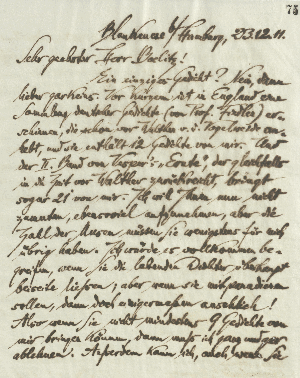 75
Blankenese b/Hamburg, 23.12.11.
Sehr geehrter Herr
Ein einziges Gedicht? Nein, dann
lieber gar keins. Vor kurzem ist in England eine
Sammlung deutscher Gedichte (von Prof. Fiedler) er-
schienen, die schon vor Walther v. d. Vogelweide an-
hebt, und sie enthält 12 Gedichte von mir. Und
der II. Band von Vesper's „Ernte", der gleichfalls
in die Zeit vor Walther zurückreicht, bringt
sogar 21 von mir. Ich will Ihnen nun nicht
zumuten, ebensoviel aufzunehmen, aber die
Zahl der Musen müssten Sie wenigstens für mich
übrig haben. Ich würde es vollkommen be-
greifen, wenn Sie die lebenden Dichter überhaupt
beiseite liessen; aber wenn sie mit
sollen, dann doch einigermaßen anschaulich!
Also wenn Sie nicht mindestens 9 Gedichte von
mir bringen können, dann muß ich ganz und gar
ablehnen. Außerdem kann ich, auch wenn Sie